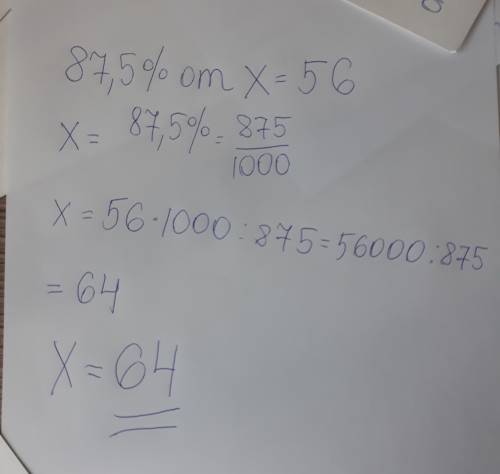 87,5% от X = 56
X = 87,5% = 875/1000
X = 56 · 1000 : 875 = 56000 : 875
= 64
X = 64